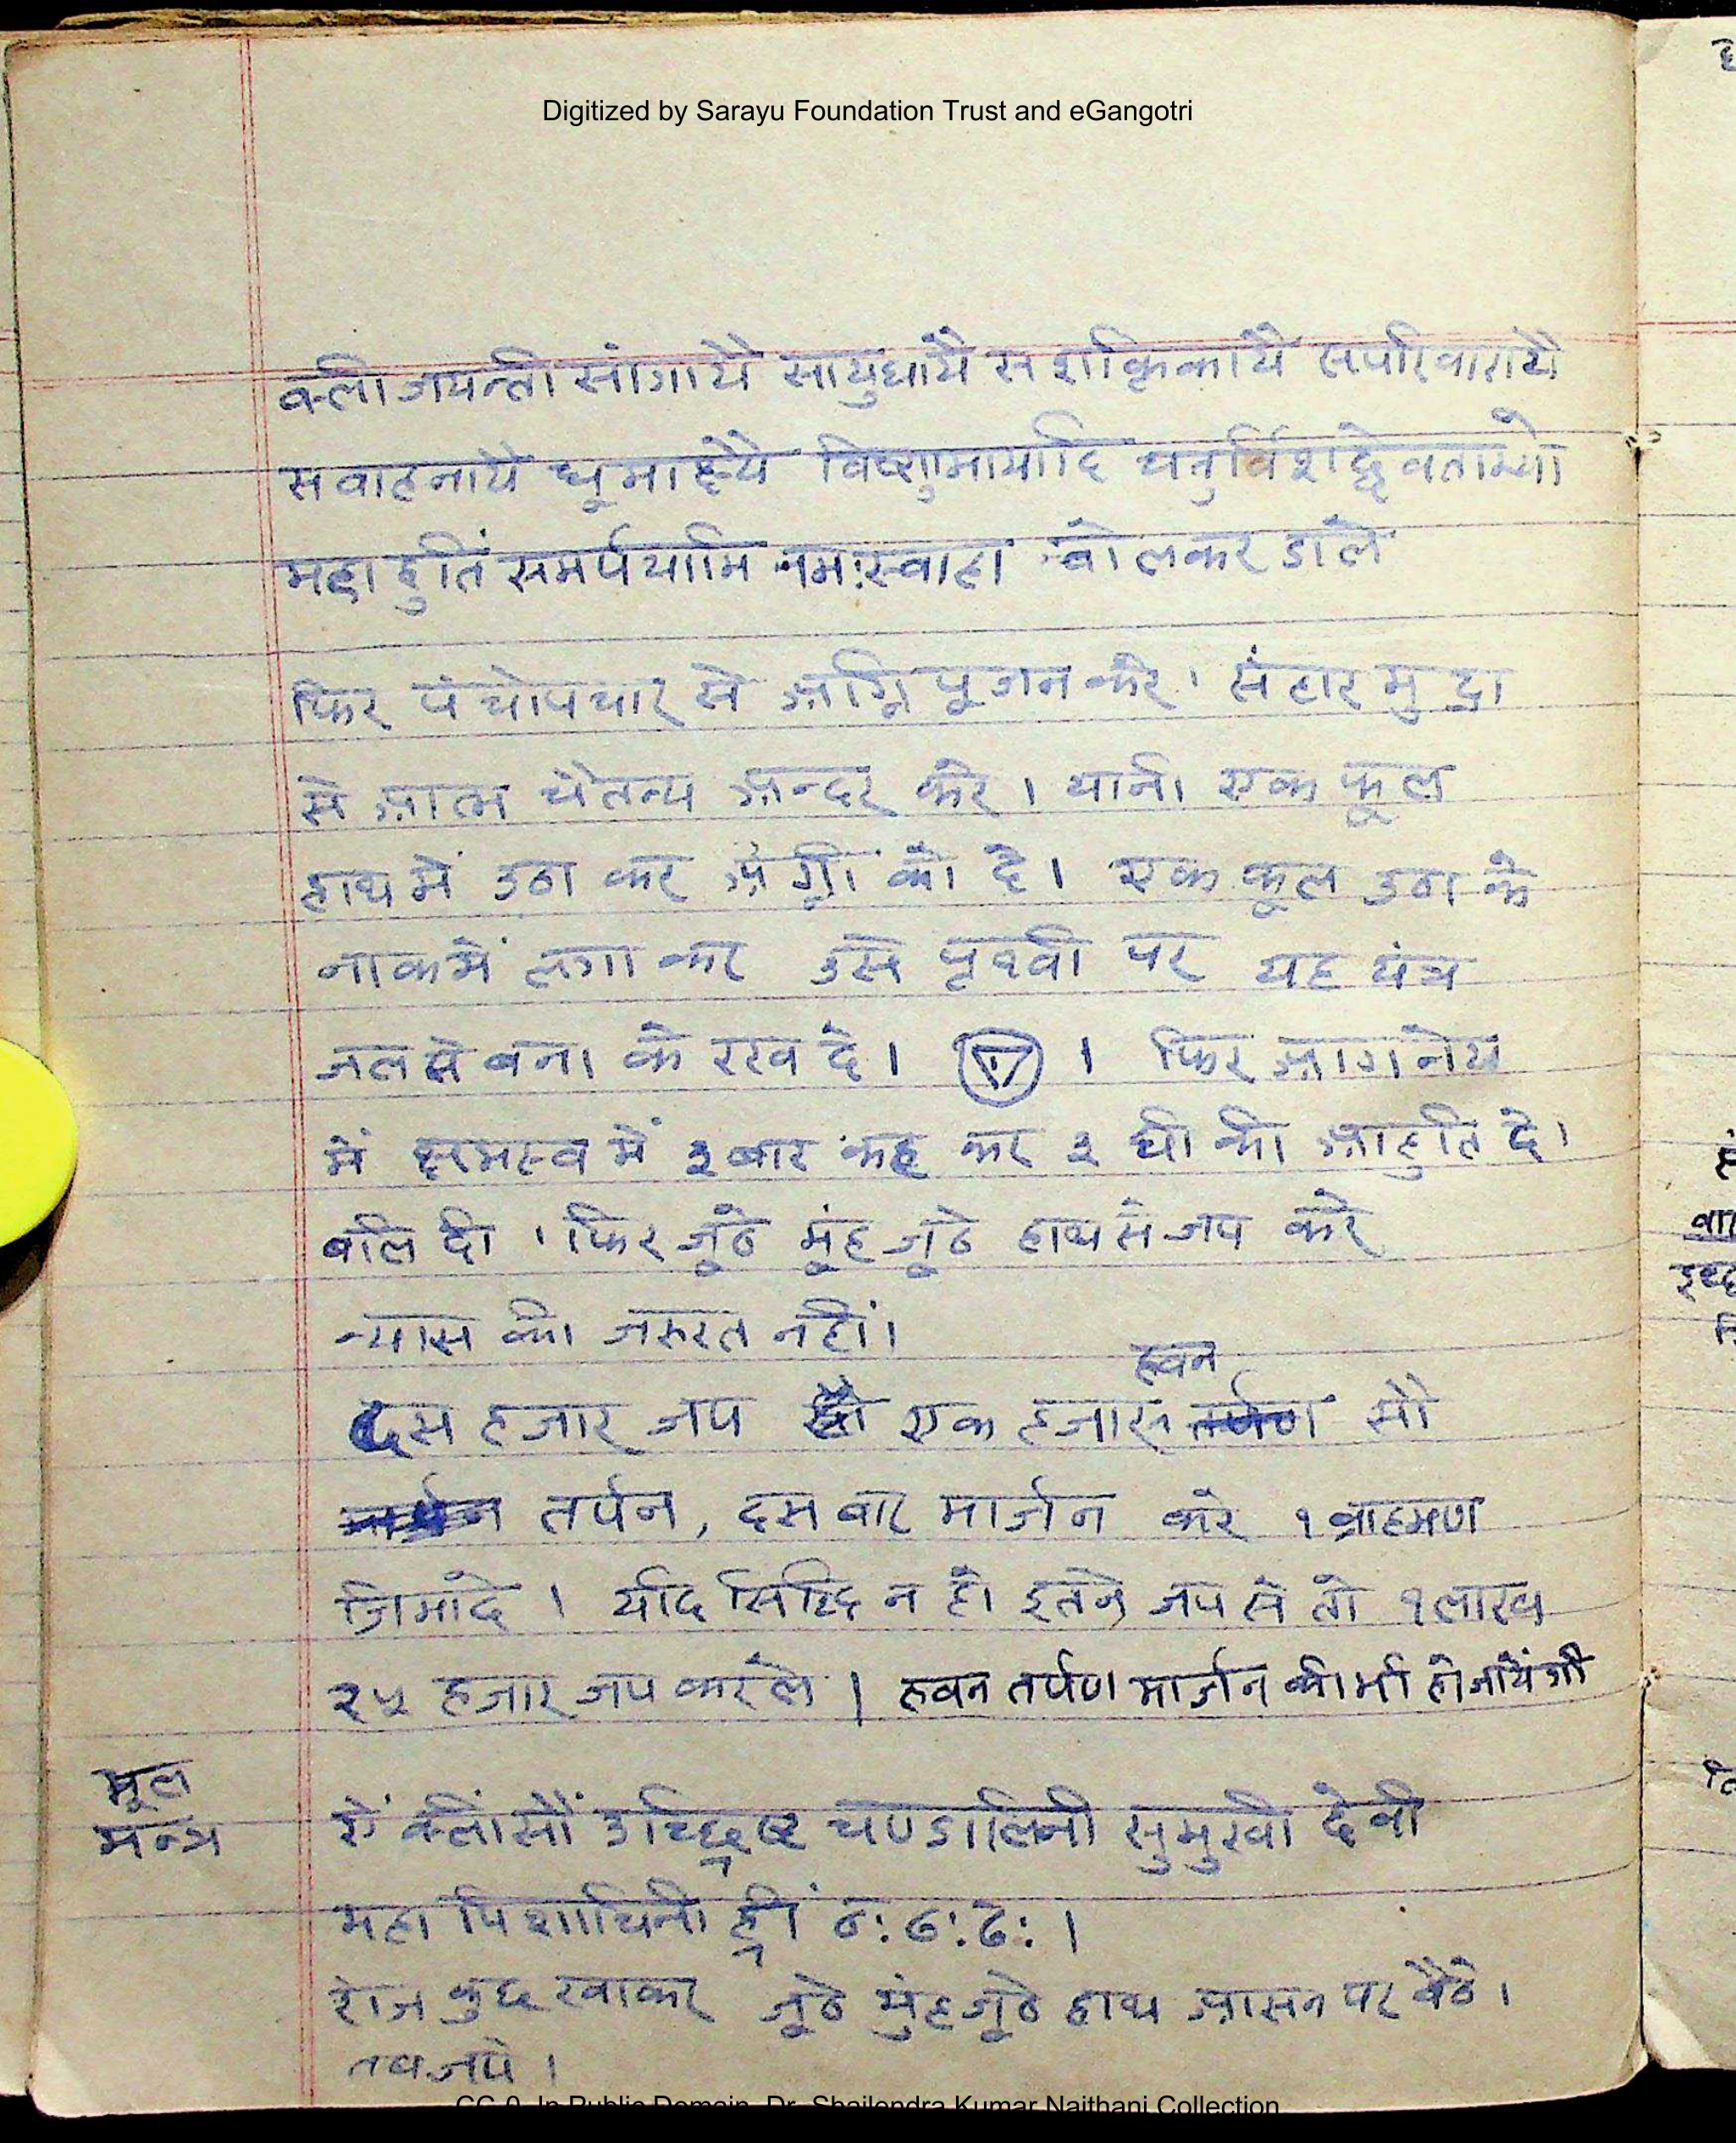 Digitized by Sarayu Foundation Trust and eGangotri
क्लीं जयन्ती सांगायै सायुधायै सशक्तिकायै सपरिवारायै
सवाहनायै धूमाक्ष्यै विष्णुमायादि चतुर्विंशद्देवताभ्यो
महाहुतिं समर्पयामि नमःस्वाहा बोलकर डाले
फिर पंचोपचार से अग्नि पूजन करे। संहार मुद्रा
से आत्म चैतन्य अन्दर करे। यानी एक फूल
हाथ में उठा कर अग्नी को दे। एक फूल उठा के
नाक में लगा कर उसे पृथ्वी पर यह यंत्र
जल से बना के रख दे। । फिर आगनेय
में क्षमस्व में ३ बार कह कर ३ घी की आहुति दे।
बलि दी। फिर जूठे मूंह जूठे हाथ से जप करे
न्यास की जरुरत नहीं।
हवन
दस हजार जप एक हजार तर्पण सौ
तर्पन, दस बार मार्जन करे १ ब्राहमण
जिमादे। यदि सिद्धि न हो इतने जप से तो १ लाख
२५ हजार जप करले। हवन तर्पण मार्जन की भी हो जायेंगी
मूल
मन्त्र
ऐं क्लीं सौं उच्छिष्ट चण्डालिनी सुमुखी देवी
महा पिशाचिनी ह्रीं ठः ठः ठः।
रोज कुछ खाकर जूठे मुंह जूठे हाथ आसन पर बैठे।
तब जपे।
CC-0. In Public Domain. Dr. Shailendra Kumar Naithani Collection